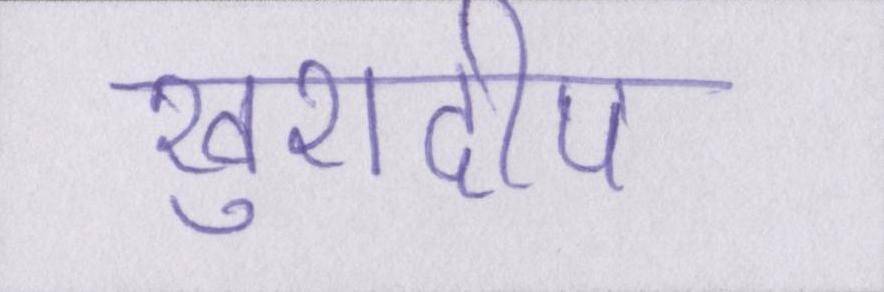 खुशदीप